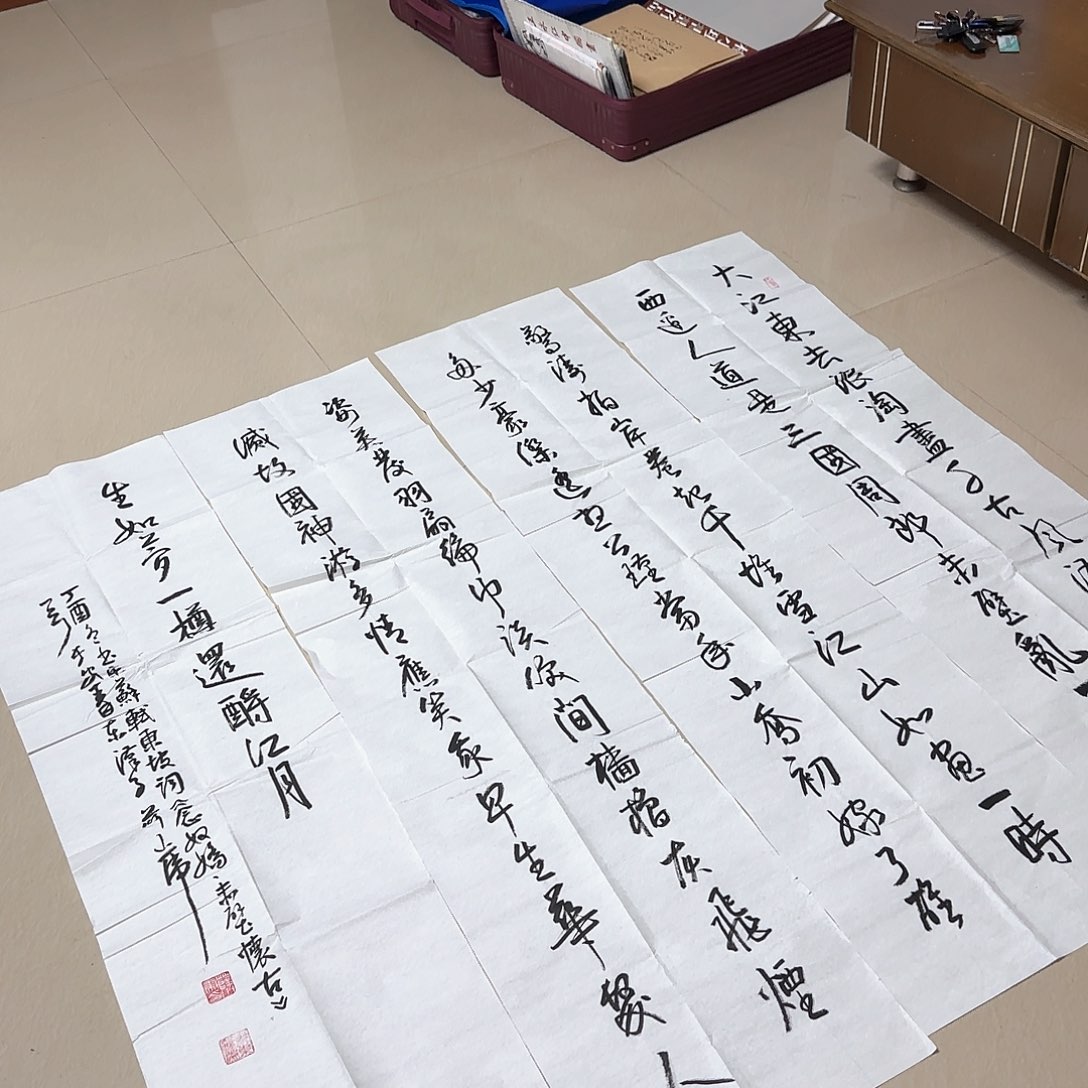 大江東去浪淘盡千古風流
西邊人道是三國周郎赤壁亂
驚濤拍岸卷起千堆雪江山如畫一時
多少豪傑遥想公瑾當年小喬初嫁了雄
姿英發羽扇綸巾談笑間檣櫓灰飛煙
滅故國神游多情應笑我早生華髮人
生如夢一樽還酹江月
丁酉冬書蘇軾東坡詞念奴嬌·赤壁懷古》